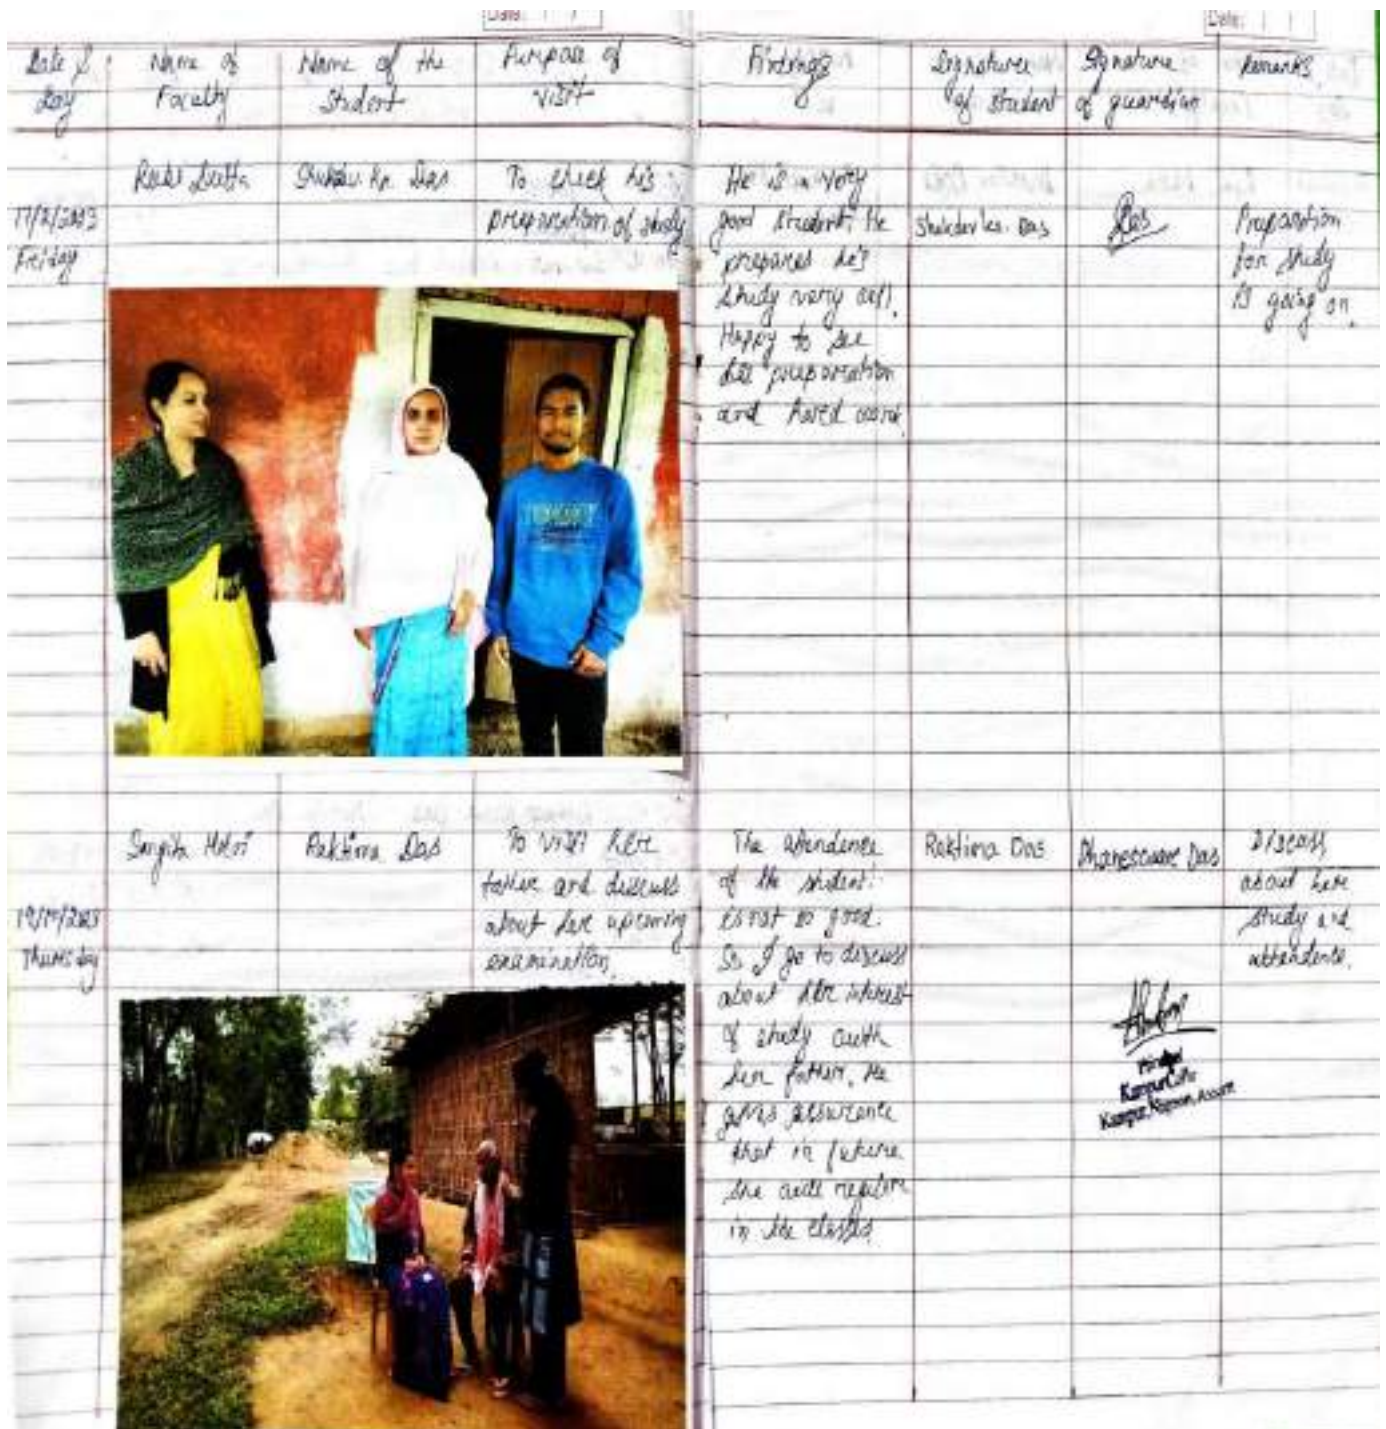 Date:
Date:
Date &
Day
Name of
Faculty
Name of the
Student
Purpose of
visit
Findings
Signature
of student
Signature
of guardian
Remarks
17/2/2023
Friday
Dutta
Das
To check he's
preparation of study
He is a very
good student. He
prepares he's
study very well.
Happy to see
preparation
and hard work.
Das
Das
Preparation
for study
is going on.
2023
Thursday
Raktima Das
To visit her
father and discuss
about her upcoming
examination
The attendence
of the student
is not so good.
So I go to discuss
about her interest
of study with
her father. He
gives assurance
that in future
she will regular
in the classes.
Raktima Das
Dhaneswar Das
Discuss
about here
study and
attendence.
Kampur, Nagaon, Assam